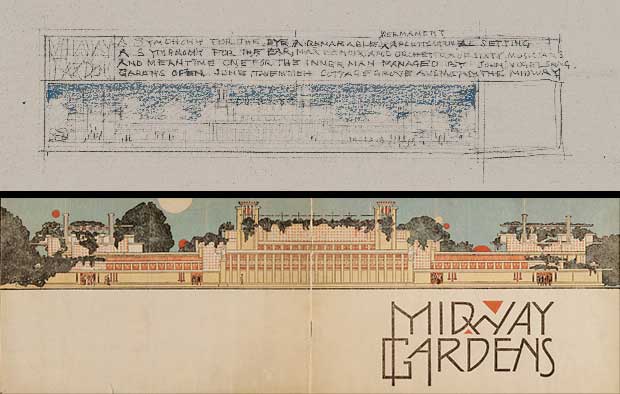 MIDWAY
GARDENS
PERMANENT
A SYMPHONY FOR THE EYE A REMARABLE ARCHITECTURAL SETTING
A SYMPHONY FOR THE EAR, MAX BENDIX AND ORCHESTRA OF SIXTY MUSICIANS
AND MEANTIME ONE FOR THE INNER MAN MANAGED BY JOHN VOGELSANG.
GARDENS OPEN JUNE TWENTIETH COTTAGE GROVE AVENUE THE MIDWAY
MIDWAY
GARDENS